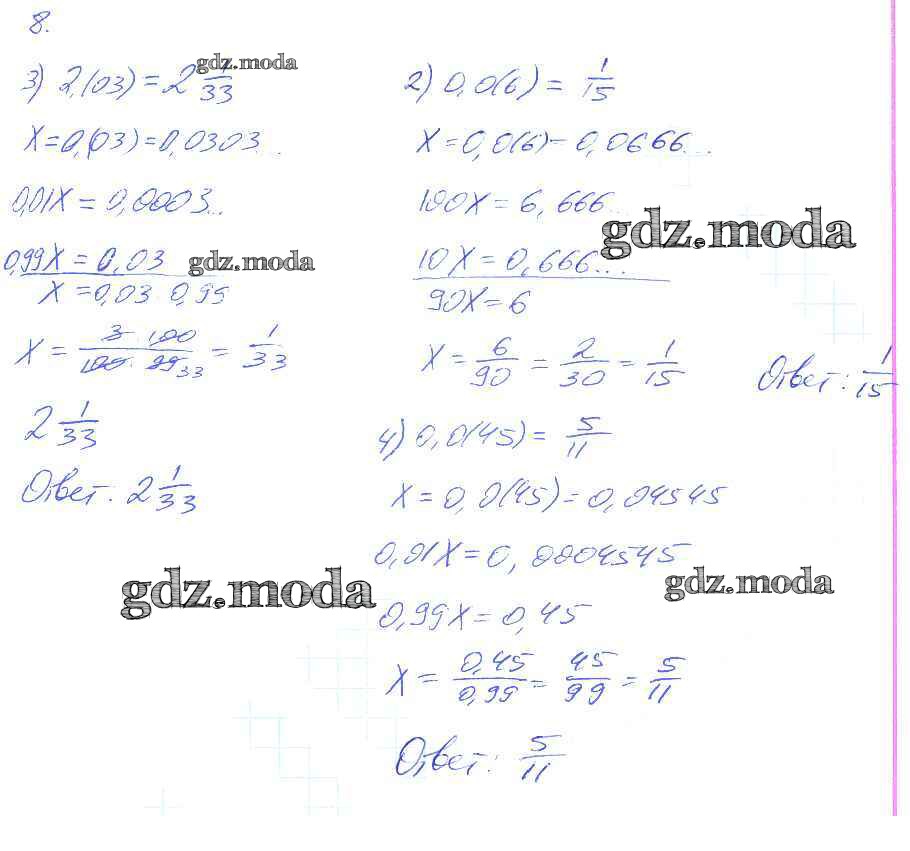 8.
3) 2,(03) = 2 1/33
x = 0,(03) = 0,0303...
0,01x = 0,0003...
0,99x = 0,03
x = 0,03 : 0,99
x = 3 · 100 / 100 · 99 33 = 1/33
2 1/33
Ответ: 2 1/33
2) 0,0(6) = 1/15
x = 0,0(6) = 0,0666...
100x = 6,666...
10x = 0,666...
90x = 6
x = 6/90 = 2/30 = 1/15
Ответ: 1/15
4) 0,0(45) = 5/11
x = 0,0(45) = 0,04545
0,01x = 0,0004545
0,99x = 0,45
x = 0,45/0,99 = 45/99 = 5/11
Ответ: 5/11
gdz.moda
gdz.moda
gdz.moda
gdz.moda
gdz.moda